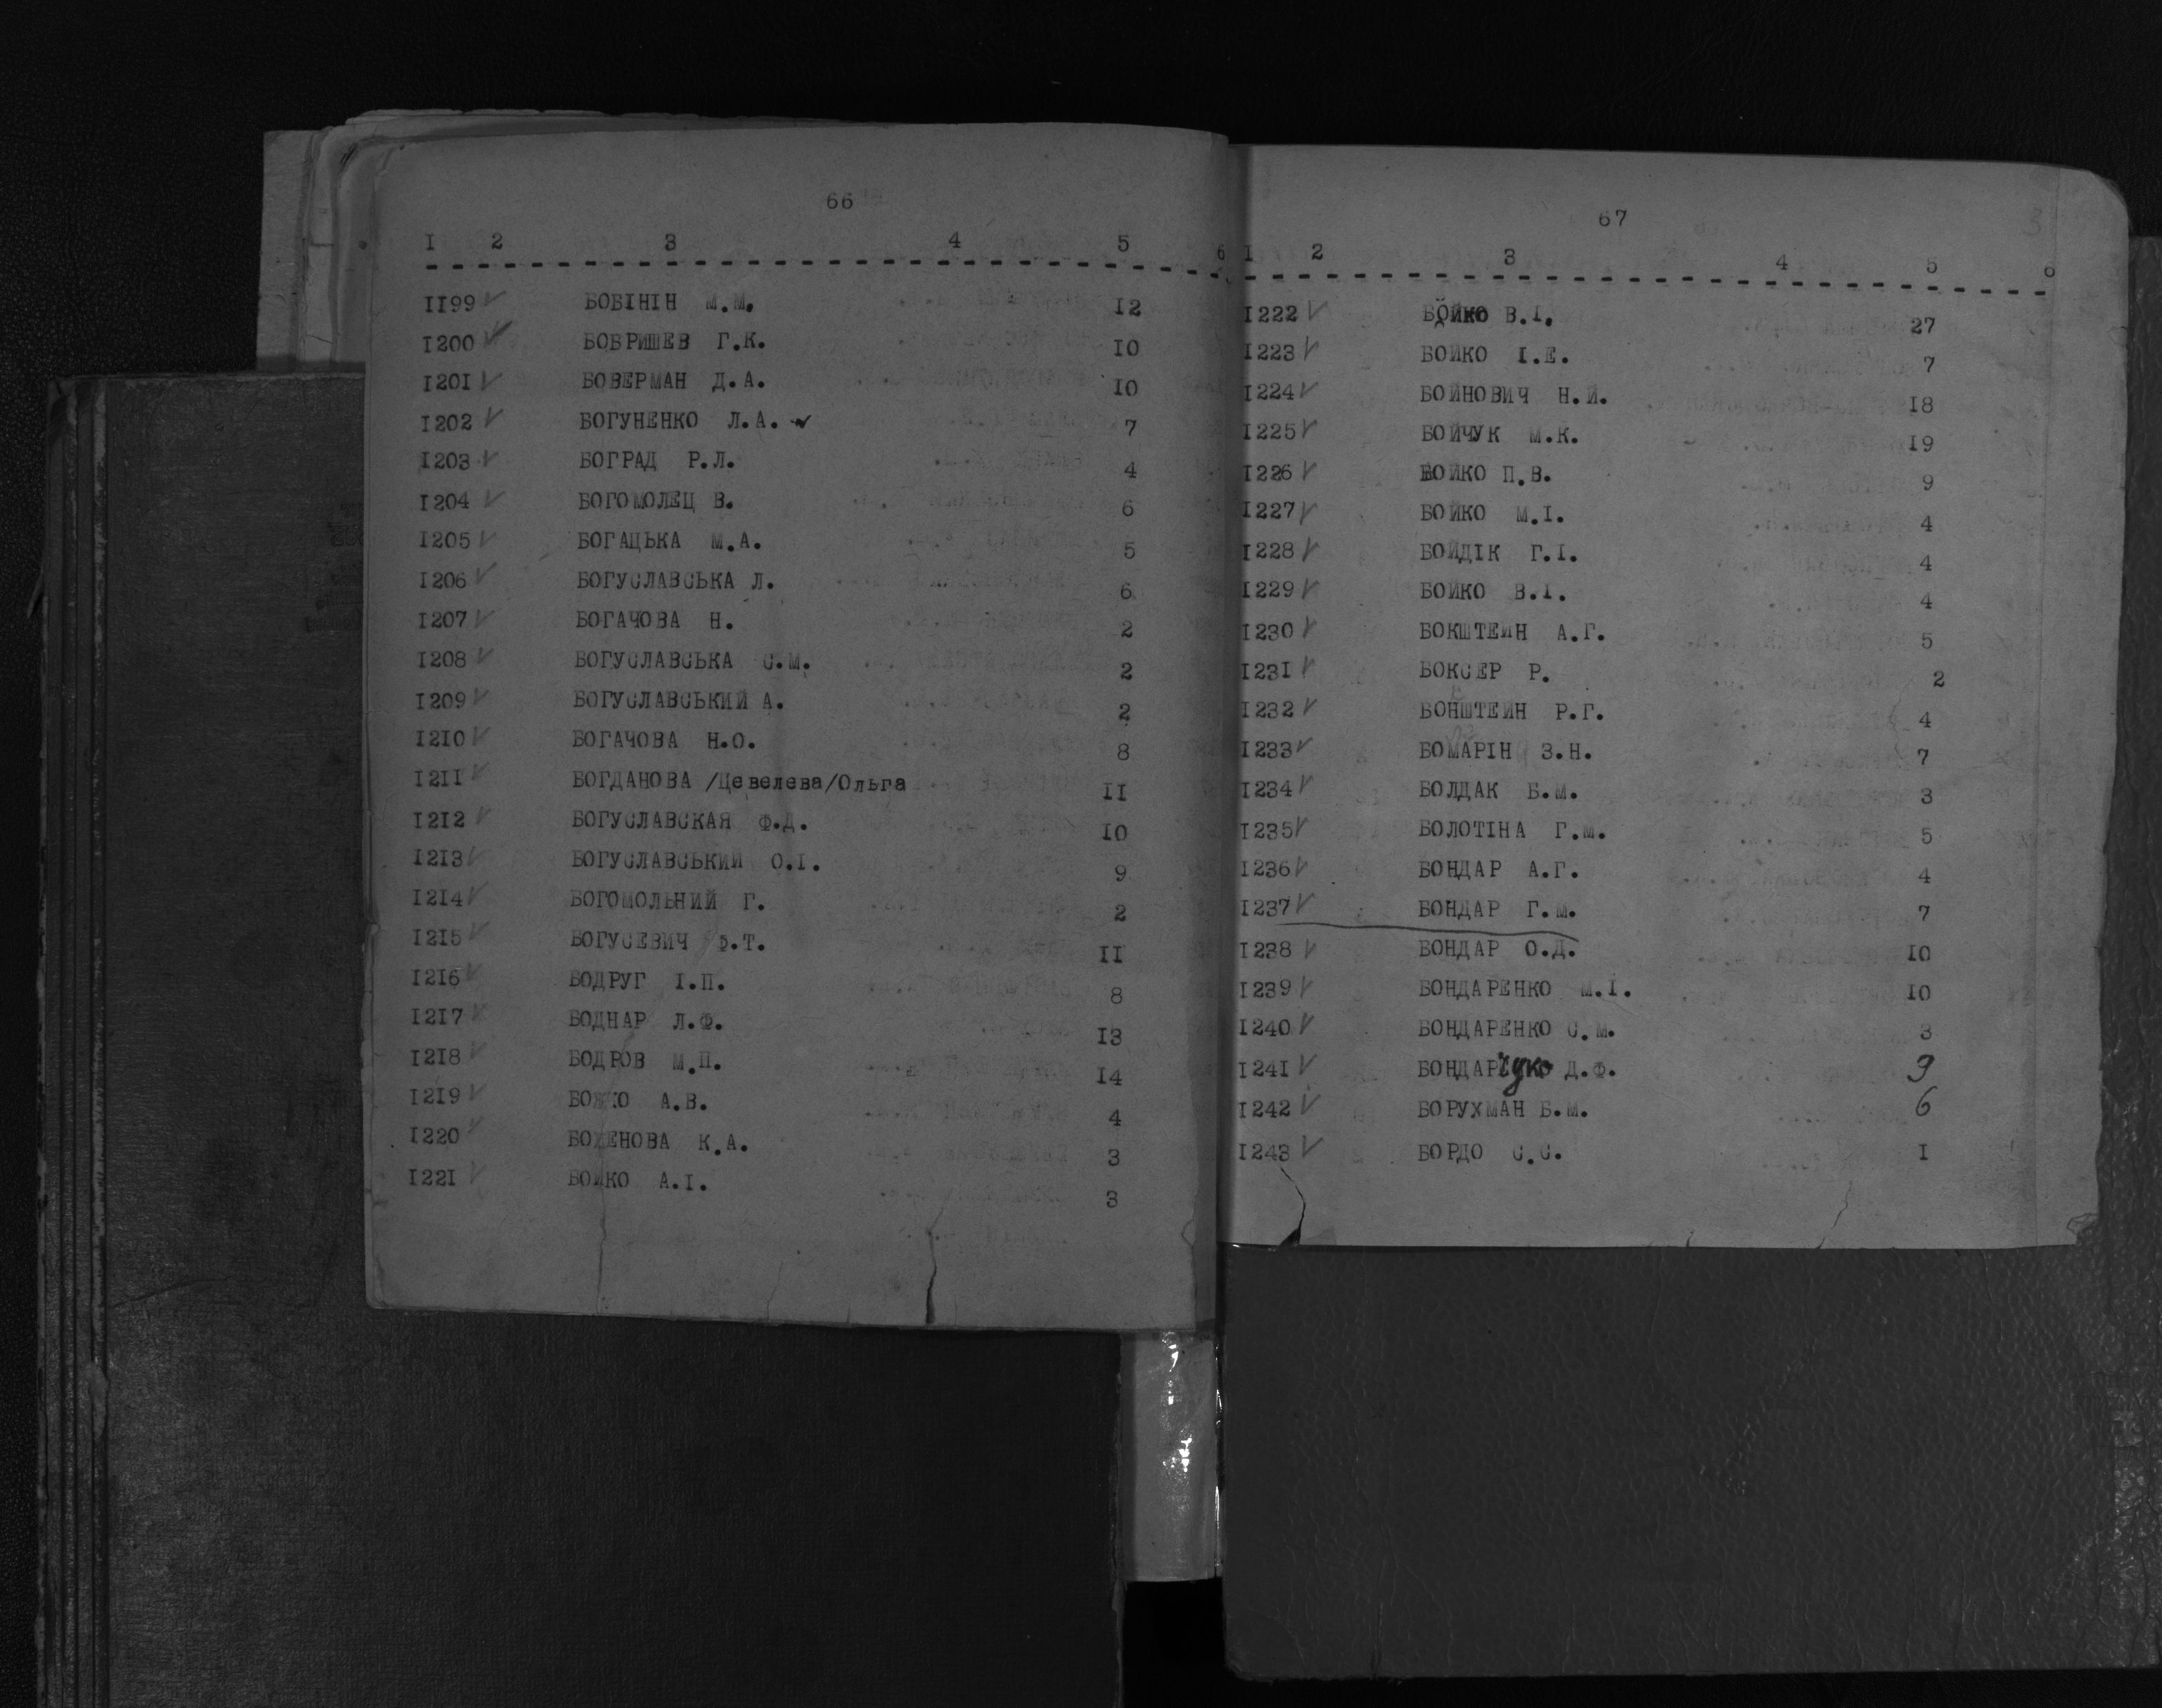 66
I 2 3 4 5 6
II99 БОБІНІН М.М. I2
I200 БОБРИШЕВ Г.К. I0
I20I БОВЕРМАН Д.А. I0
I202 БОГУНЕНКО Л.А. 7
I203 БОГРАД Р.Л. 4
I204 БОГОМОЛЕЦ В. 6
I205 БОГАЦЬКА М.А. 5
I206 БОГУСЛАВСЬКА Л. 6
I207 БОГАЧОВА Н. 2
I208 БОГУСЛАВСЬКА С.М. 2
I209 БОГУСЛАВСЬКИЙ А. 2
I2I0 БОГАЧОВА Н.О. 8
I2II БОГДАНОВА /Цевелева/Ольга II
I2I2 БОГУСЛАВСКАЯ Ф.Д. I0
I2I3 БОГУСЛАВСЬКИЙ О.І. 9
I2I4 БОГОМОЛЬНИЙ Г. 2
I2I5 БОГУСЕВИЧ Ф.Т. II
I2I6 БОДРУГ І.П. 8
I2I7 БОДНАР Л.Ф. I3
I2I8 БОДРОВ М.П. I4
I2I9 БОЖКО А.В. 4
I220 БОЖЕНОВА К.А. 3
I22I БОЙКО А.І. 3
67
I 2 3 4 5 6
I222 БОЙКО В.І. 27
I223 БОЙКО І.Е. 7
I224 БОЙНОВИЧ Н.Й. I8
I225 БОЙЧУК М.К. I9
I226 БОЙКО П.В. 9
I227 БОЙКО М.І. 4
I228 БОЙДІК Г.І. 4
I229 БОЙКО В.І. 4
I230 БОКШТЕЙН А.Г. 5
I23I БОКСЕР Р. 2
I232 БОНШТЕЙН Р.Г. 4
I233 БОМАРІН З.Н. 7
I234 БОЛДАК Б.М. 3
I235 БОЛОТІНА Г.М. 5
I236 БОНДАР А.Г. 4
I237 БОНДАР Г.М. 7
I238 БОНДАР О.Д. I0
I239 БОНДАРЕНКО М.І. I0
I240 БОНДАРЕНКО С.М. 3
I24I БОНДАР Д.Ф. 9
I242 БОРУХМАН Б.М. 6
I243 БОРДО С.С. I